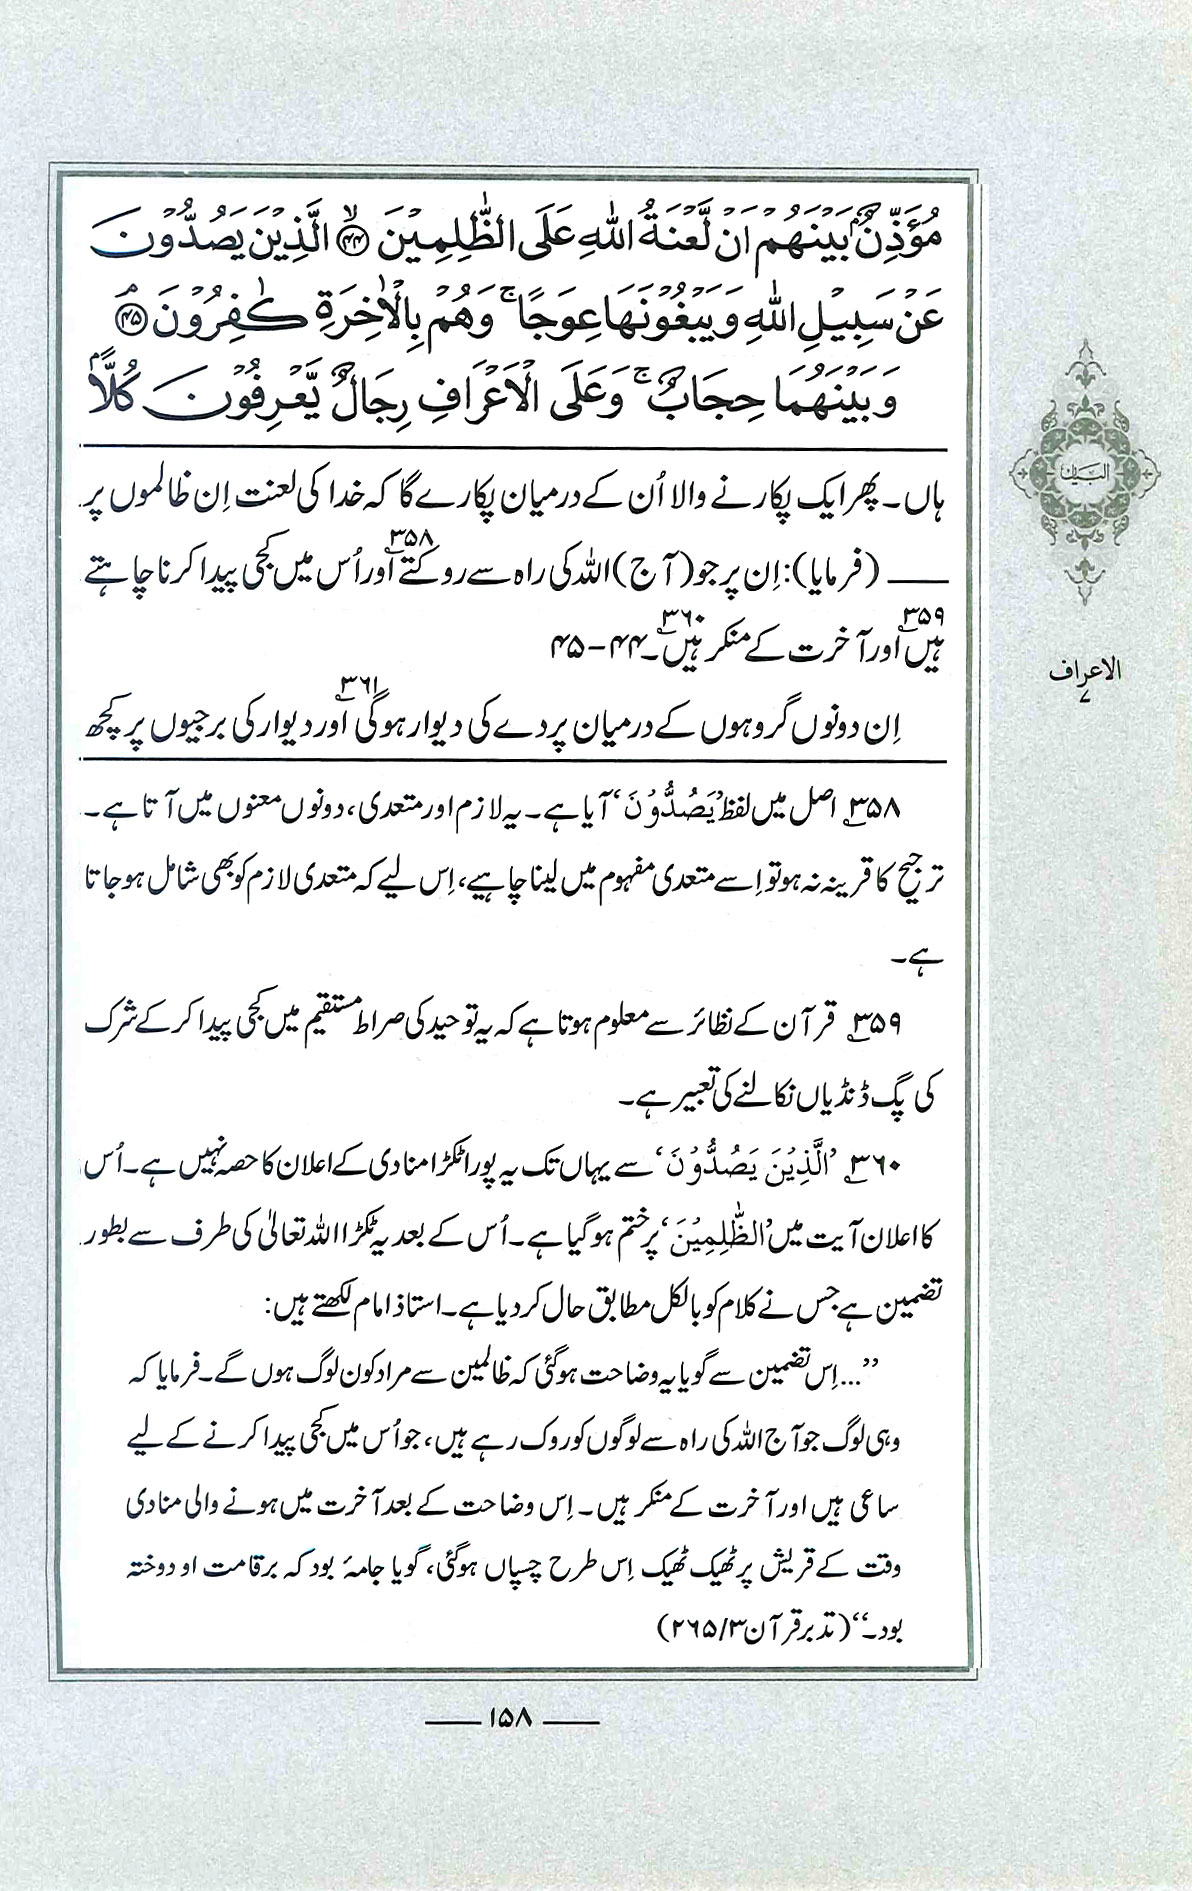 مُؤَذِّنٌۢ بَيْنَهُمْ اَنْ لَّعْنَةُ اللّٰهِ عَلَى الظّٰلِمِيْنَ ﴿۴۴﴾ۙ الَّذِيْنَ يَصُدُّوْنَ
عَنْ سَبِيْلِ اللّٰهِ وَيَبْغُوْنَهَا عِوَجًا ۚ وَهُمْ بِالْاٰخِرَةِ كٰفِرُوْنَ ﴿۴۵﴾ۘ
وَبَيْنَهُمَا حِجَابٌ ۚ وَعَلَى الْاَعْرَافِ رِجَالٌ يَّعْرِفُوْنَ كُلًّاۢ
ہاں۔ پھر ایک پکارنے والا اُن کے درمیان پکارے گا کہ خدا کی لعنت اِن ظالموں پر
ــــــ (فرمایا): اِن پر جو (آج) اللہ کی راہ سے روکتے۳۵۸ اور اُس میں کجی پیدا کرنا چاہتے
ہیں۳۵۹ اور آخرت کے منکر ہیں۳۶۰۔ ۴۴-۴۵
اِن دونوں گروہوں کے درمیان پردے کی دیوار ہوگی۳۶۱ اور دیوار کی برجیوں پر کچھ
۳۵۸؎ اصل میں لفظ ’یَصُدُّوْنَ‘ آیا ہے۔ یہ لازم اور متعدی، دونوں معنوں میں آتا ہے۔
ترجیح کا قرینہ نہ ہو تو اِسے متعدی مفہوم میں لینا چاہیے، اِس لیے کہ متعدی لازم کو بھی شامل ہو جاتا
ہے۔
۳۵۹؎ قرآن کے نظائر سے معلوم ہوتا ہے کہ یہ توحید کی صراط مستقیم میں کجی پیدا کر کے شرک
کی پگ ڈنڈیاں نکالنے کی تعبیر ہے۔
۳۶۰؎ ’الَّذِیْنَ یَصُدُّوْنَ‘ سے یہاں تک یہ پورا ٹکڑا منادی کے اعلان کا حصہ نہیں ہے۔ اُس
کا اعلان آیت میں ’الظّٰلِمِیْنَ‘ پر ختم ہو گیا ہے۔ اُس کے بعد یہ ٹکڑا اللہ تعالیٰ کی طرف سے بطور
تضمین ہے جس نے کلام کو بالکل مطابق حال کر دیا ہے۔ استاذ امام لکھتے ہیں:
’’...اِس تضمین سے گویا یہ وضاحت ہو گئی کہ ظالمین سے مراد کون لوگ ہوں گے۔ فرمایا کہ
وہی لوگ جو آج اللہ کی راہ سے لوگوں کو روک رہے ہیں، جو اُس میں کجی پیدا کرنے کے لیے
ساعی ہیں اور آخرت کے منکر ہیں۔ اِس وضاحت کے بعد آخرت میں ہونے والی منادی
وقت کے قریش پر ٹھیک ٹھیک اِس طرح چسپاں ہو گئی، گویا جامۂ بود کہ بر قامت او دوختہ
بود۔‘‘ (تدبر قرآن ۳/ ۲۶۵)
البیان
الاعراف
۷
ــــــ ۱۵۸ ــــــ